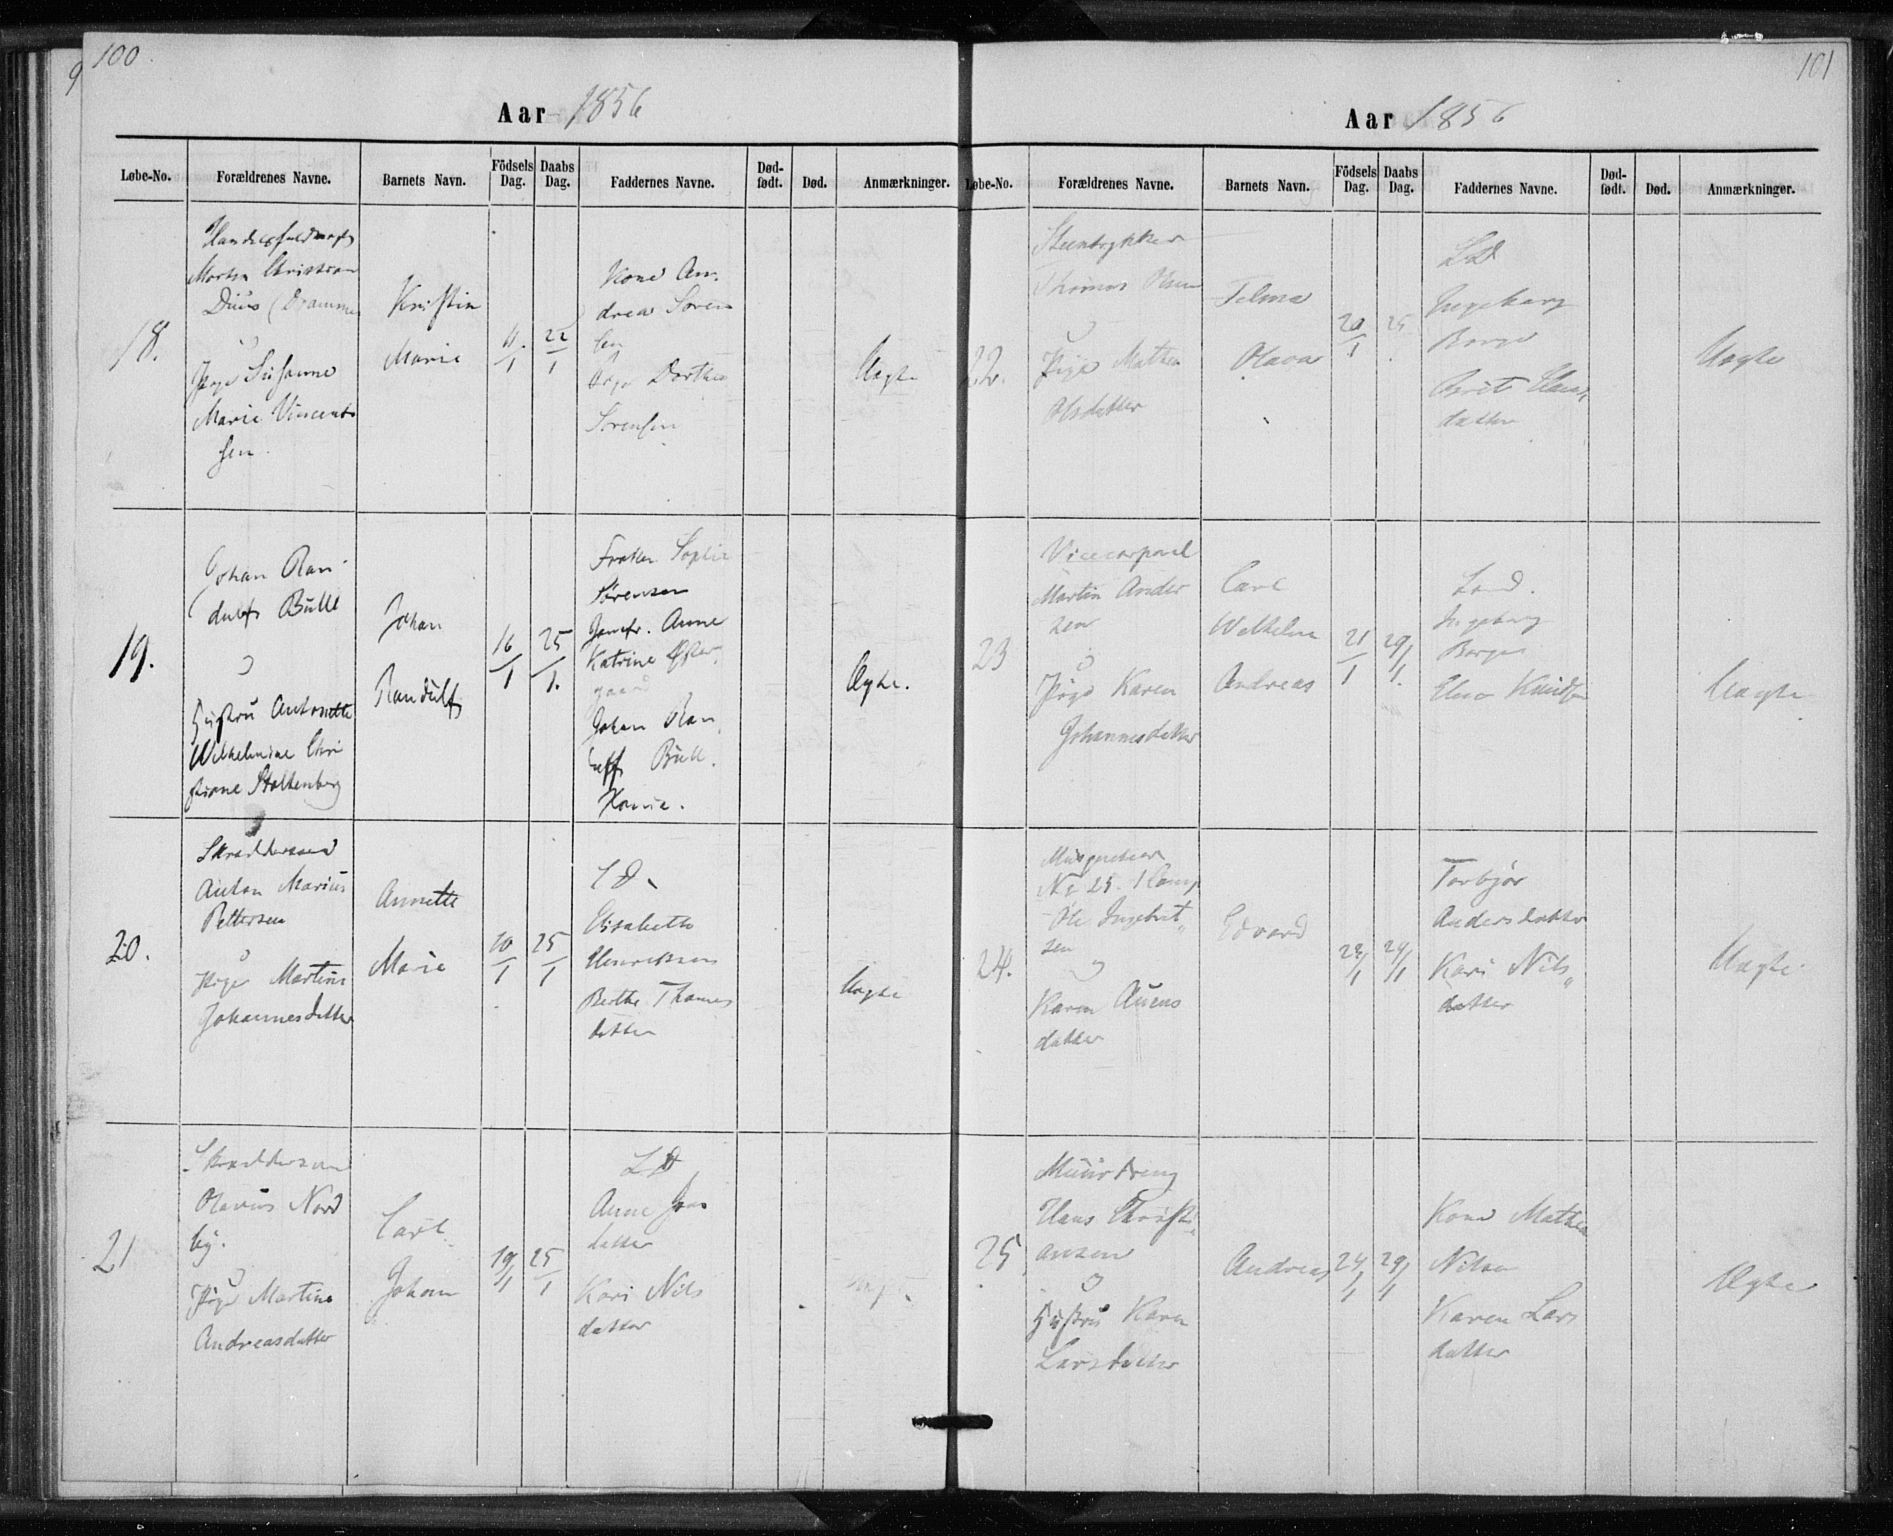 100
9
Aar 1856
Løbe-No. Forældrenes Navne. Barnets Navn. Födsels Dag. Daabs Dag. Faddernes Navne. Død-født. Død. Anmærkninger.
18.
Morten Christian
Duus (Drammen
Pige Susanne
Marie Vincent
sen.
Kristin
Marie
11/1
22/1
Kone An-
drea Sören
sen
Pige Dorthea
Sörensen
Uægte
19.
Johan Ran-
dulf Bull
og
Hustru Antonette
Wilhelmine Chri
stiane Stoltenberg
Johan
Randulf
16/1
25/1.
Frøken Sophie
Sörensen
Jomfr. Anne
Katrine Øster-
gaard
Johan Ran,
ulff Bull.
Ægte.
20.
Skræddersvend
Anton Marius
Pettersen
og
Pige Martine
Johannesdatter
Annette
Marie
10/1
25/1
L D.
Elisabeth
Henriksen
Berthe Thomes
datter
Uægte
21
Skræddersvend
Olavus Nord
by.
og
Pige Martine
Andreasdatter
Carl
Johan
19/1
25/1
L D
Anne Jons
datter
Kari Nils
datter
101
Aar 1856
Løbe-No. Forældrenes Navne. Barnets Navn. Födsels Dag. Daabs Dag. Faddernes Navne. Død-født. Død. Anmærkninger.
22.
Steentrykker
Thomas Olsen
og
Pige Mathea
Olsdatter
Telma
Olava
20/1
25
L D
Ingeborg
Borge
Berit Claus,
datter
Uægte
23
Vicecorporal
Martin Ander
sen
og
Pige Karen
Johannesdatter
Carl
Wilhelm
Andreas
21/1
29/1.
L and D.
Ingeborg
Borge
Elen Knudsen
Uægte
24.
Musqueteer
No 25. 1 Comp
Ole Ingebret„
sen
og
Karen Auens
datter
Edvard
23/1
29/1
Torbjør
Andersdatter
Kari Nils„
datter
Uægte.
25.
Muurdreng
Hans Christi
ansen
og
Hustru Karen
Larsdatter
Andreas
24/1
29/1
Kone Mathea
Nilsen
Karen Lars
datter
Ægte